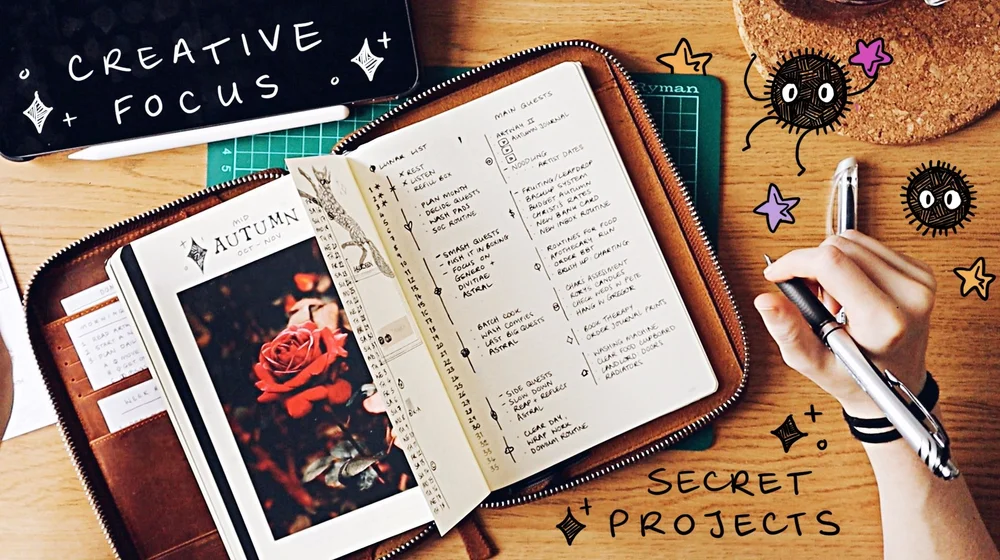 CREATIVE
FOCUS
MID
AUTUMN
OCT - NOV
LUNAR LIST
× REST
× LISTEN
× REFILL BOX
- PLAN MONTH
- DECIDE QUESTS
- WASH PADS
- SOC ROUTINE
- SMASH QUESTS
- PUSH IT IN BOXING
- FOCUS ON
ASTRAL
- BATCH COOK
- WASH COMFIES
- LAST BIG QUESTS
- ASTRAL
- SIDE QUESTS
- SLOW DOWN
- REAP + REFLECT
ASTRAL
- CLEAR DAY
- WRAP WORK
- DOWSUM ROUTINE
MAIN QUESTS
ARTWAY II
AUTUMN JOURNAL
- NOODLING
ARTIST DATES
BACKUP SYSTEM
BUDGET AUTUMN
NEW BANK CARD
NEW INBOX ROUTINE
ROUTINES FOR FOOD
APOTHECARY RUN
ORDER BBT
BRUSH UP CHARTING
CHARS ASSESSMENT
RORYS CANDLES
HANG IN GREGOR
BOOK THERAPY
ORDER JOURNAL PRINTS
- WASHING MACHINE
CLEAR FOOD CUPBOARD
LANDLORD: DOORS
RADIATORS
MORNING
WEEK
Ryman
SECRET
PROJECTS